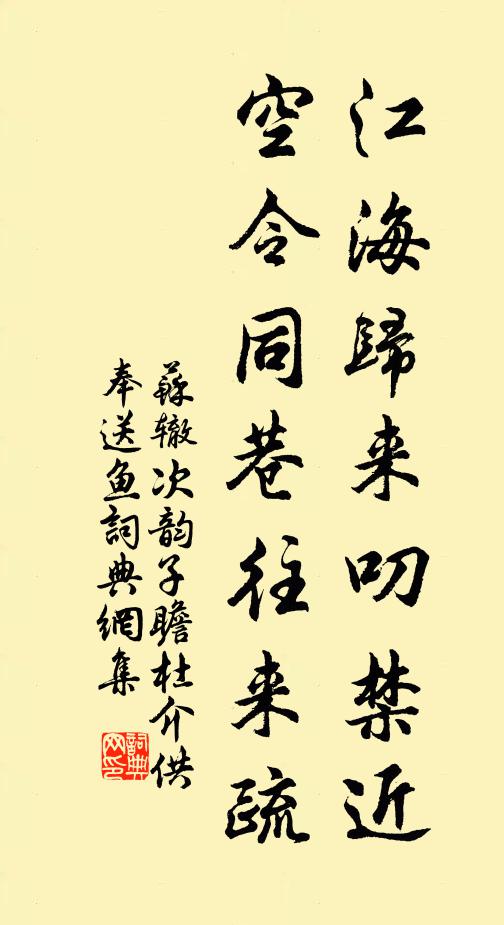 江海歸来叨禁近
空令同巷往来疏
蘇辙次韵子瞻杜介供
奉送鱼詞典網集
詞典
网印